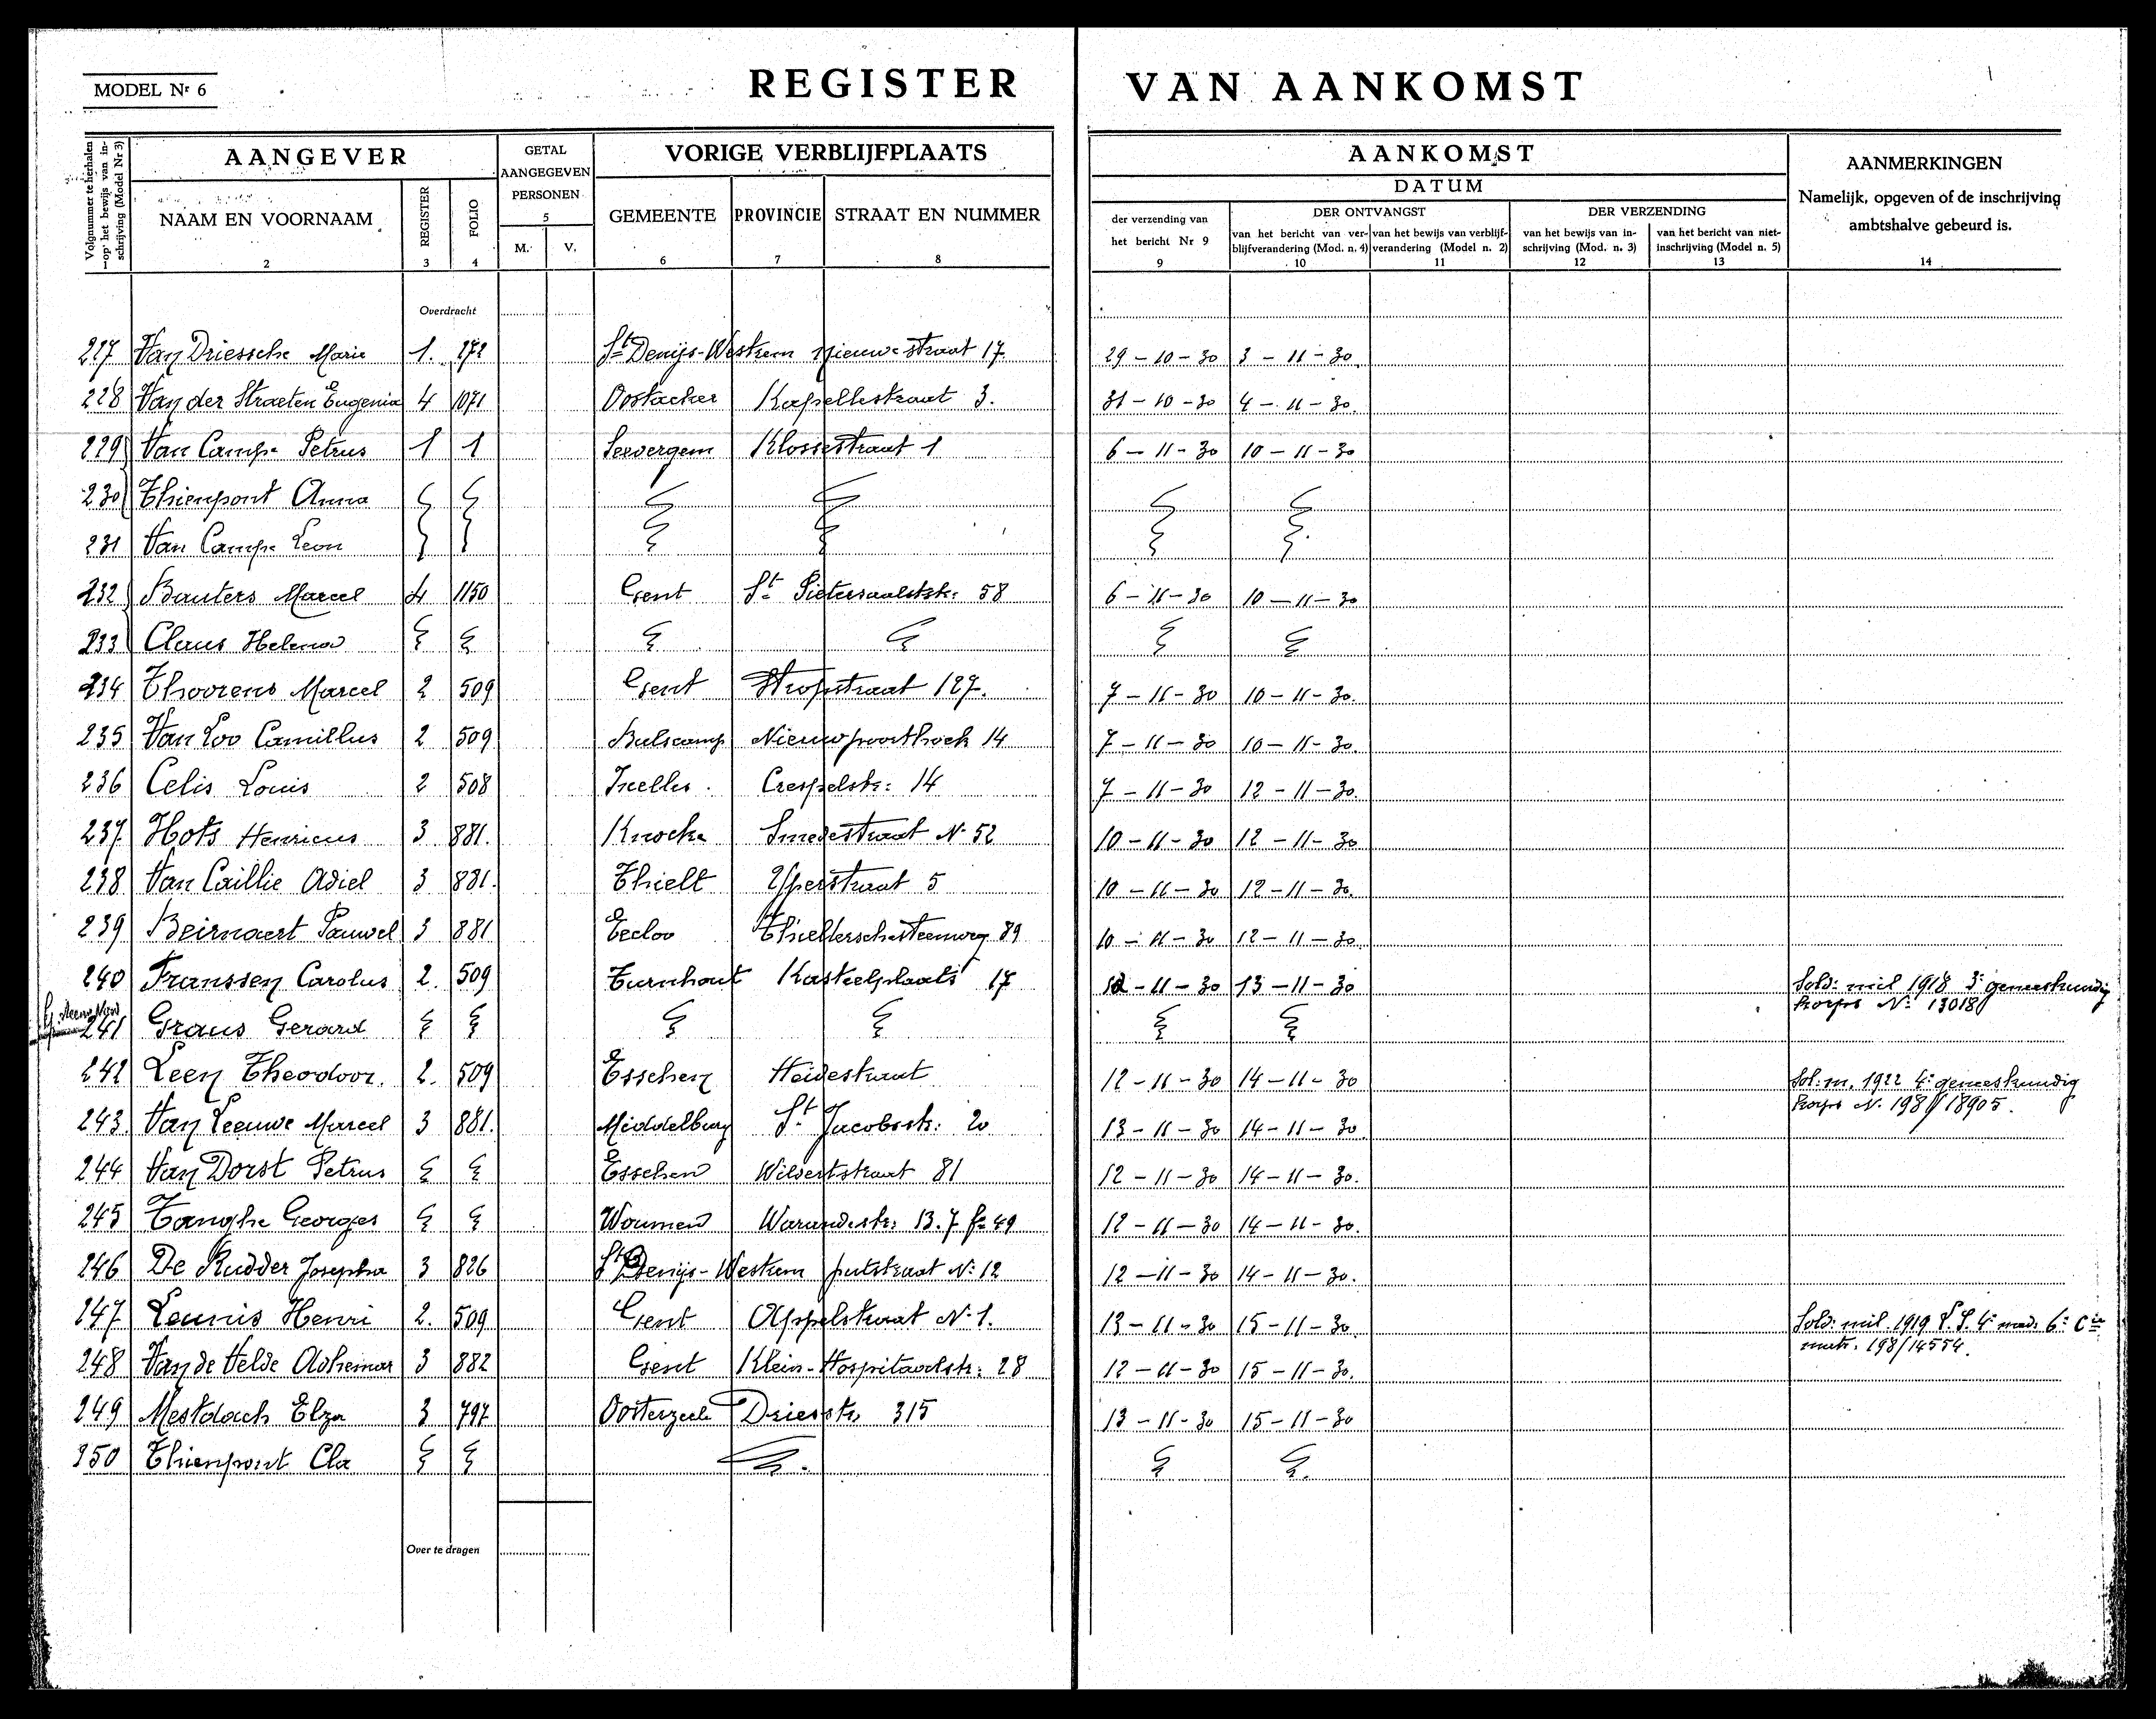 MODEL Nr 6
REGISTER VAN AANKOMST
Volgnummer te herhalen op het bewijs van inschrijving (Model Nr 3)
AANGEVER
GETAL AANGEGEVEN PERSONEN
5
VORIGE VERBLIJFPLAATS
AANKOMST
DATUM
AANMERKINGEN
Namelijk, opgeven of de inschrijving
ambtshalve gebeurd is.
NAAM EN VOORNAAM REGISTER FOLIO M. V. GEMEENTE PROVINCIE STRAAT EN NUMMER
der verzending van het bericht Nr 9
DER ONTVANGST
van het bericht van verblijfverandering (Mod. n. 4)
van het bewijs van verblijfverandering (Model n. 2)
DER VERZENDING
van het bewijs van inschrijving (Mod. n. 3)
van het bericht van niet-inschrijving (Model n. 5)
1 2 3 4 6 7 8 9 10 11 12 13 14
Overdracht
227 Van Driessche Marie 1. 272 St Denijs-Westrem nieuwestraat 17 29-10-30 3-11-30
228 Van der Straeten Eugenia 4 1071 Oostacker Kapellestraat 3. 31-10-30 4-11-30.
229 Van Campe Petrus 1 1 Seevergem Klossestraat 1 6-11-30 10-11-30
230 Thienpont Anna
231 Van Campe Leon
232 Bauters Marcel 4 1150 Gent St Pietersaalststr: 58 6-11-30 10-11-30
233 Claus Helena
234 Thoorens Marcel 2 509 Gent Stropstraat 127. 7-11-30 10-11-30.
235 Van Loo Camillus 2 509 Bulscamp Nieuwpoorthoek 14 7-11-30 10-11-30.
236 Celis Louis 2 508 Ixelles. Crespelstr: 14 7-11-30 12-11-30.
237 Hots Henricus 3 881. Knocke Smedestraat No 52 10-11-30 12-11-30
238 Van Caillie Adiel 3 881. Thielt Yperstraat 5 10-11-30 12-11-30.
239 Beirnaert Pauwel 3 881 Eecloo Thieltersche steenweg 89 10-11-30 12-11-30
240 Franssen Carolus 2. 509 Turnhout Kasteelplaats 17 12-11-30 13-11-30 Sold: mil 1918 3e geneeskundig
korps No 13018
241 Graus Gerard
242 Leen Theodoor. 2. 509 Esschen Heidestraat 12-11-30 14-11-30 Sol: m. 1922 4e geneeskundig
korps No 198/18905.
243. Van Leeuwe Marcel 3 881. Middelburg St Jacobsstr: 20 13-11-30 14-11-30
244 Van Dorst Petrus Esschen Wildertstraat 81 12-11-30 14-11-30.
245 Tanghe Georges Woumen Warandestr: 13.7 fo 49 12-11-30 14-11-30.
246 De Rudder Josepha 3 826 St Denijs-Westrem putstraat No 12 12-11-30 14-11-30.
247 Leunis Henri 2. 509 Gent Appelstraat No 1. 13-11-30 15-11-30. Sold: mil. 1919 4e 6e Cie
matr. 198/14554.
248 Van de Velde Adhemar 3 882 Gent Klein-Hospitaalstr: 28 12-11-30 15-11-30.
249 Mestdach Elza 3 797 Oosterzeele Driesstr. 315 13-11-30 15-11-30
250 Thienpont Cla
Over te dragen